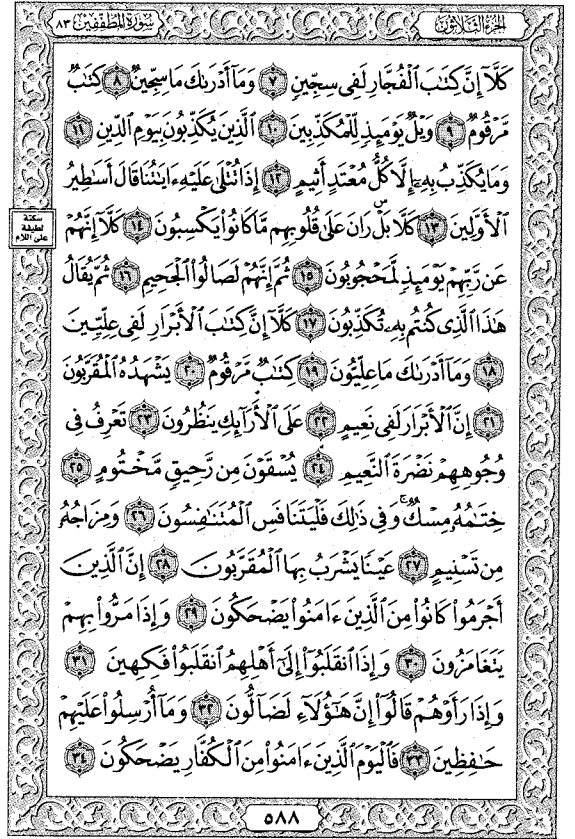 الجزء الثلاثون
سورة المطففين ٨٣
كَلَّآ إِنَّ كِتَٰبَ ٱلْفُجَّارِ لَفِى سِجِّينٍ ٧ وَمَآ أَدْرَىٰكَ مَا سِجِّينٌ ٨ كِتَٰبٌ
مَّرْقُومٌ ٩ وَيْلٌ يَوْمَئِذٍ لِّلْمُكَذِّبِينَ ١٠ ٱلَّذِينَ يُكَذِّبُونَ بِيَوْمِ ٱلدِّينِ ١١
وَمَا يُكَذِّبُ بِهِۦٓ إِلَّا كُلُّ مُعْتَدٍ أَثِيمٍ ١٢ إِذَا تُتْلَىٰ عَلَيْهِ ءَايَٰتُنَا قَالَ أَسَٰطِيرُ
ٱلْأَوَّلِينَ ١٣ كَلَّا بَلْۜ رَانَ عَلَىٰ قُلُوبِهِم مَّا كَانُوا۟ يَكْسِبُونَ ١٤ كَلَّآ إِنَّهُمْ
سكتة
لطيفة
على اللام
عَن رَّبِّهِمْ يَوْمَئِذٍ لَّمَحْجُوبُونَ ١٥ ثُمَّ إِنَّهُمْ لَصَالُوا۟ ٱلْجَحِيمِ ١٦ ثُمَّ يُقَالُ
هَٰذَا ٱلَّذِى كُنتُم بِهِۦ تُكَذِّبُونَ ١٧ كَلَّآ إِنَّ كِتَٰبَ ٱلْأَبْرَارِ لَفِى عِلِّيِّينَ
١٨ وَمَآ أَدْرَىٰكَ مَا عِلِّيُّونَ ١٩ كِتَٰبٌ مَّرْقُومٌ ٢٠ يَشْهَدُهُ ٱلْمُقَرَّبُونَ
٢١ إِنَّ ٱلْأَبْرَارَ لَفِى نَعِيمٍ ٢٢ عَلَى ٱلْأَرَآئِكِ يَنظُرُونَ ٢٣ تَعْرِفُ فِى
وُجُوهِهِمْ نَضْرَةَ ٱلنَّعِيمِ ٢٤ يُسْقَوْنَ مِن رَّحِيقٍ مَّخْتُومٍ ٢٥
خِتَٰمُهُۥ مِسْكٌ ۚ وَفِى ذَٰلِكَ فَلْيَتَنَافَسِ ٱلْمُتَنَٰفِسُونَ ٢٦ وَمِزَاجُهُۥ
مِن تَسْنِيمٍ ٢٧ عَيْنًا يَشْرَبُ بِهَا ٱلْمُقَرَّبُونَ ٢٨ إِنَّ ٱلَّذِينَ
أَجْرَمُوا۟ كَانُوا۟ مِنَ ٱلَّذِينَ ءَامَنُوا۟ يَضْحَكُونَ ٢٩ وَإِذَا مَرُّوا۟ بِهِمْ
يَتَغَامَزُونَ ٣٠ وَإِذَا ٱنقَلَبُوٓا۟ إِلَىٰٓ أَهْلِهِمُ ٱنقَلَبُوا۟ فَكِهِينَ ٣١
وَإِذَا رَأَوْهُمْ قَالُوٓا۟ إِنَّ هَٰٓؤُلَآءِ لَضَآلُّونَ ٣٢ وَمَآ أُرْسِلُوا۟ عَلَيْهِمْ
حَٰفِظِينَ ٣٣ فَٱلْيَوْمَ ٱلَّذِينَ ءَامَنُوا۟ مِنَ ٱلْكُفَّارِ يَضْحَكُونَ ٣٤
٥٨٨